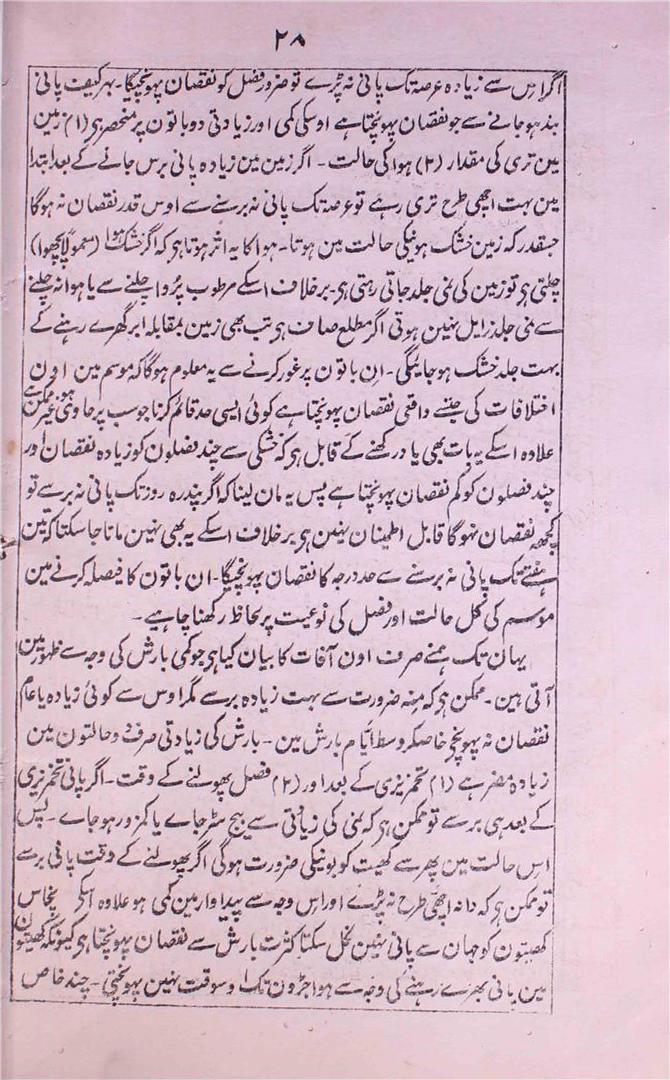 ۲۸
اگر اس سے زیادہ عرصہ تک پانی نہ پڑے تو ضرور فصل کو نقصان پہونچیگا۔ بہر کیف پانی
بند ہو جانے سے جو نقصان پہونچتا ہے اوسکی کمی اور زیادتی دو باتون پر منحصر ہی (۱) زمین
مین تری کی مقدار (۲) ہوا کی حالت ۔ اگر زمین مین زیادہ پانی برس جانے کے بعد ابتدا
مین بہت اچھی طرح تری رہے تو عرصہ تک پانی نہ برسنے سے اوس قدر نقصان نہ ہوگا
جسقدر کہ زمین خشک ہونیکی حالت مین ہوتا۔ ہوا کا یہ اثر ہوتا ہی کہ اگر خشک ہوا (معمولاً پچھوا)
چلتی ہی تو زمین کی نمی جلد جاتی رہتی ہی۔ برخلاف اسکے مرطوب پُروا چلنے سے یا ہوا نہ چلنے
سے نمی جلد زایل نہین ہوتی اگر مطلع صاف ہی تب بھی زمین بمقابلہ ابر گھرے رہنے کے
بہت جلد خشک ہو جائیگی ۔ ان باتون پر غور کرنے سے یہ معلوم ہوگا کہ موسم مین اون
اختلافات کی جنسے واقعی نقصان پہونچتا ہے کوئی ایسی حد قائم کرنا جو سب پر حاوی ہو غیر ممکن ہے
علاوہ اسکے یہ بات بھی یاد رکھنے کے قابل ہی کہ خشکی سے چند فصلون کو زیادہ نقصان اور
چند فصلون کو کم نقصان پہونچتا ہے پس یہ مان لینا کہ اگر پندرہ روز تک پانی نہ برسے تو
کچھ نقصان نہوگا قابل اطمینان نہین ہی برخلاف اسکے یہ بھی نہین مانا جا سکتا کہ تین
ہفتے تک پانی نہ برسنے سے حد درجہ کا نقصان پہونچیگا۔ ان باتون کا فیصلہ کرنے مین
موسم کی کل حالت اور فصل کی نوعیت پر لحاظ رکھنا چاہیے ۔
یہان تک ہمنے صرف اون آفات کا بیان کیا ہی جو کمی بارش کی وجہ سے ظہور مین
آتی ہین ۔ ممکن ہی کہ مینہ ضرورت سے بہت زیادہ برسے مگر اوس سے کوئی زیادہ یا عام
نقصان نہ پہونچے خاصکر وسط ایام بارش مین ۔ بارش کی زیادتی صرف دو حالتون مین
زیادہ مضر ہے (۱) تخمریزی کے بعد اور (۲) فصل پھولنے کے وقت ۔ اگر پانی تخمریزی
کے بعد ہی برسے تو ممکن ہی کہ نمی کی زیادتی سے بیج سڑ جاے یا کمزور ہو جاے ۔ پس
اس حالت مین پھر سے کھیت کو بونیکی ضرورت ہوگی اگر پھولنے کے وقت پانی برسے
تو ممکن ہی کہ دانہ اچھی طرح نہ پڑے اور اس وجہ سے پیداوار مین کمی ہو علاوہ اسکے بخاس
کھیتون کو جہان سے پانی نہین نکل سکتا کثرت بارش سے نقصان پہونچتا ہی کیونکہ کھیتون
مین پانی بھرے رہنے کی وجہ سے ہوا جڑون تک اوسوقت نہین پہونچتی ۔ چند خاص